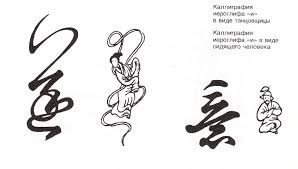 Каллиграфия
иероглифа «и»
в виде танцовщицы
Каллиграфия
иероглифа «и» в виде
сидящего человека
意